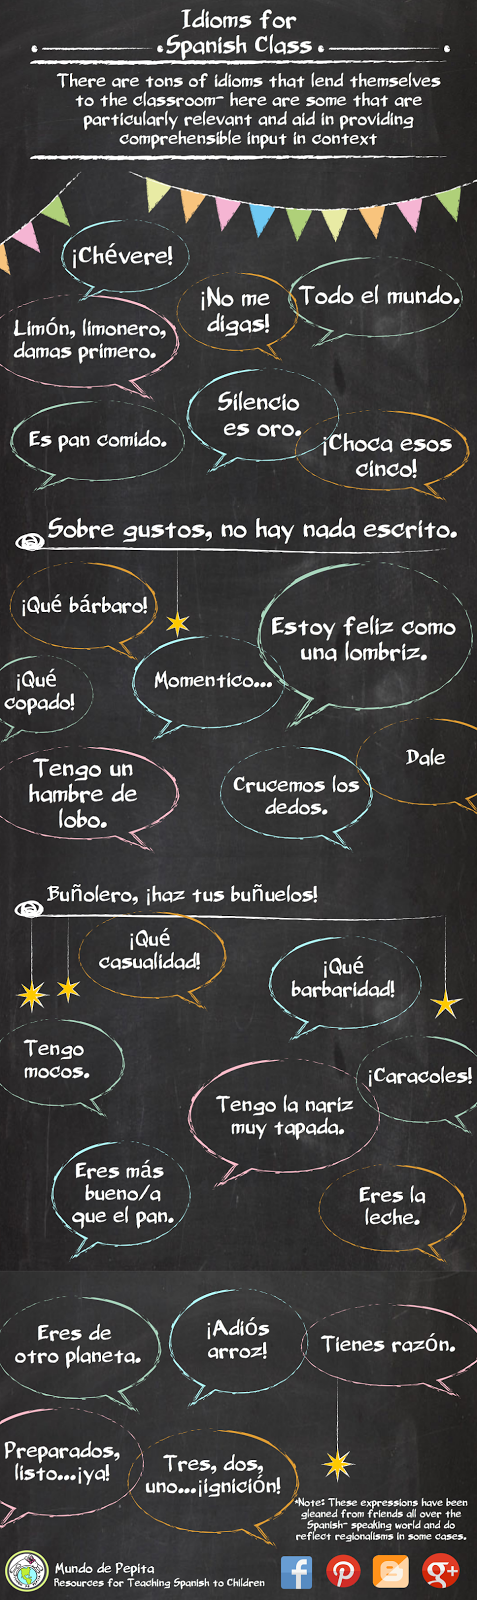 Idioms for
Spanish Class
There are tons of idioms that lend themselves
to the classroom- here are some that are
particularly relevant and aid in providing
comprehensible input in context
¡Chévere!
¡No me
digas!
Todo el mundo.
Limón, limonero,
damas primero.
Silencio
es oro.
Es pan comido.
¡Choca esos
cinco!
Sobre gustos, no hay nada escrito.
¡Qué bárbaro!
Estoy feliz como
una lombriz.
¡Qué
copado!
Momentico...
Tengo un
hambre de
lobo.
Crucemos los
dedos.
Dale
Buñolero, ¡haz tus buñuelos!
¡Qué
casualidad!
¡Qué
barbaridad!
Tengo
mocos.
¡Caracoles!
Tengo la nariz
muy tapada.
Eres más
bueno/a
que el pan.
Eres la
leche.
Eres de
otro planeta.
¡Adiós
arroz!
Tienes razón.
Preparados,
listo...¡ya!
Tres, dos,
uno...¡ignición!
*Note: These expressions have been
gleaned from friends all over the
Spanish- speaking world and do
reflect regionalisms in some cases.
Mundo de Pepita
Resources for Teaching Spanish to Children